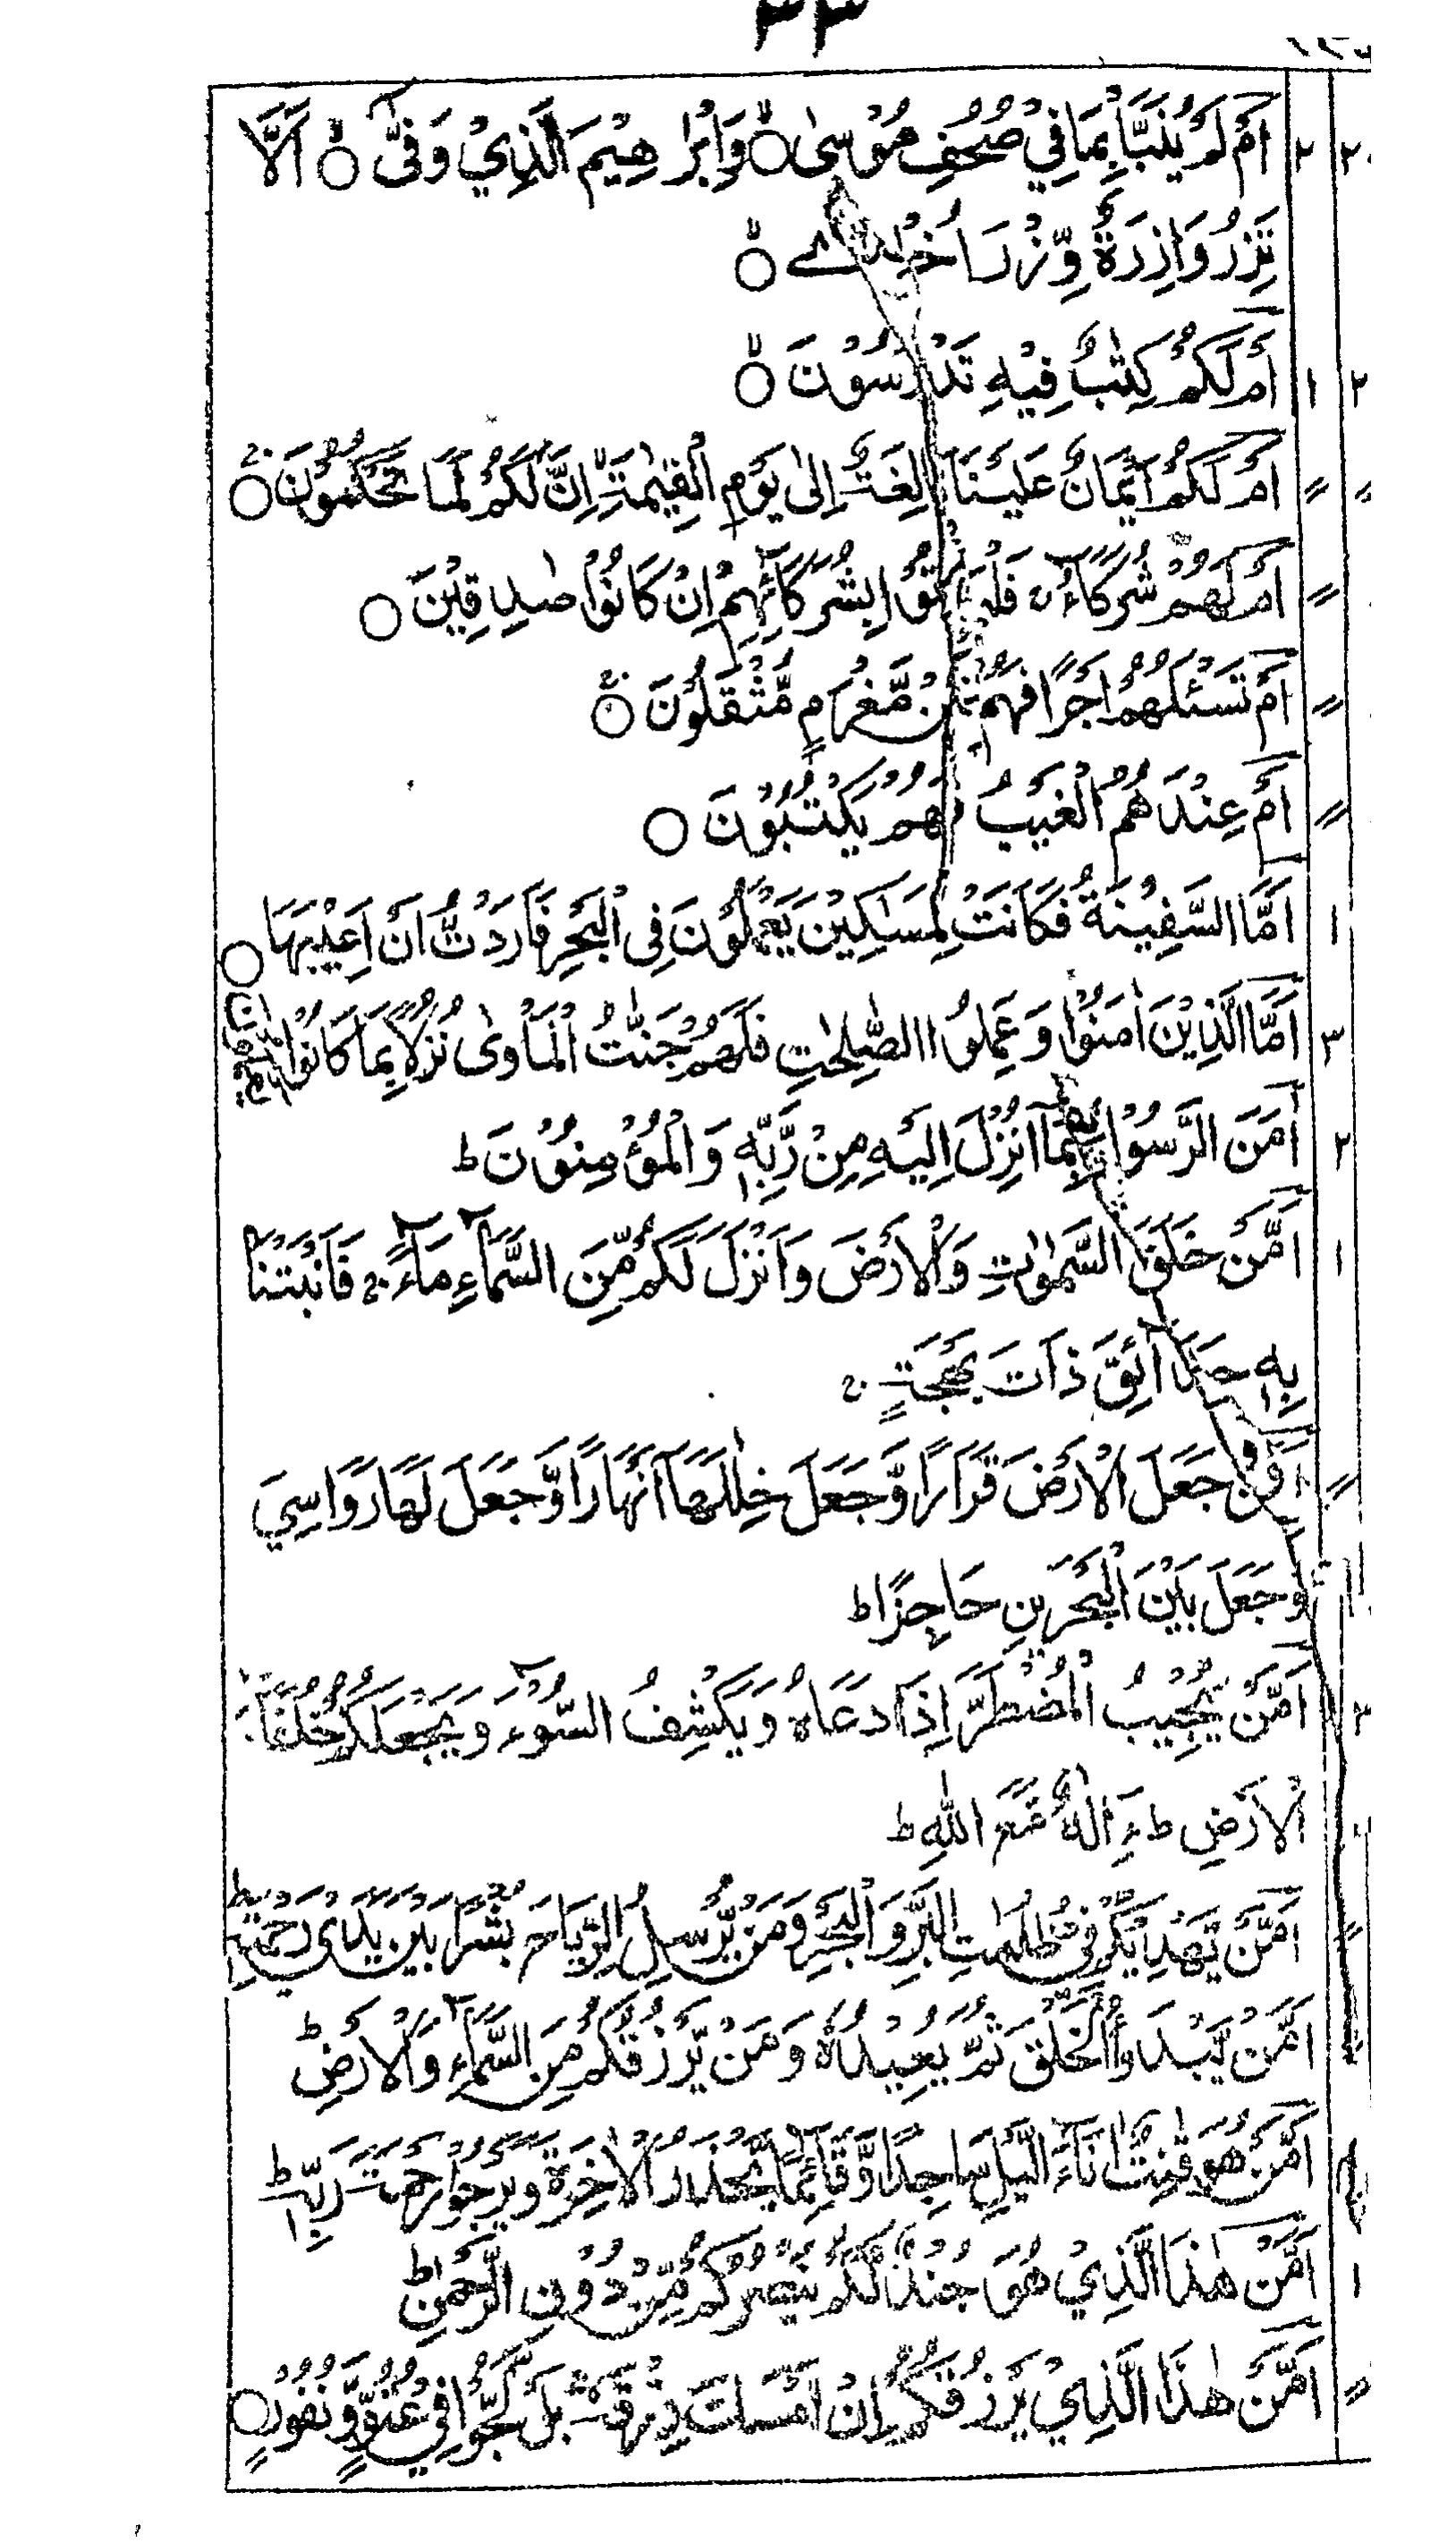 ٣٣
٢٠ ٢ اَمْ لَمْ يُنَبَّاْ بِمَا فِيْ صُحُفِ مُوْسٰى ۙ○ وَاِبْرٰهِيْمَ الَّذِيْ وَفّٰىٓ ۙ○ اَلَّا
تَزِرُ وَازِرَةٌ وِّزْرَ اُخْرٰے ۙ○
٢ ١ اَمْ لَكُمْ كِتٰبٌ فِيْهِ تَدْرُسُوْنَ ۙ○
〃 〃 اَمْ لَكُمْ اَيْمَانٌ عَلَيْنَا بَالِغَةٌ اِلٰى يَوْمِ الْقِيٰمَةِ ۙ اِنَّ لَكُمْ لَمَا تَحْكُمُوْنَ ۚ○
〃 اَمْ لَهُمْ شُرَكَآءُ ۛ فَلْيَاْتُوْا بِشُرَكَآئِهِمْ اِنْ كَانُوْا صٰدِقِيْنَ ○
〃 اَمْ تَسْـَٔلُهُمْ اَجْرًا فَهُمْ مِّنْ مَّغْرَمٍ مُّثْقَلُوْنَ ۚ○
〃 اَمْ عِنْدَهُمُ الْغَيْبُ فَهُمْ يَكْتُبُوْنَ ○
١ اَمَّا السَّفِيْنَةُ فَكَانَتْ لِمَسٰكِيْنَ يَعْمَلُوْنَ فِى الْبَحْرِ فَاَرَدْتُّ اَنْ اَعِيْبَهَا ○
٣ اَمَّا الَّذِيْنَ اٰمَنُوْا وَعَمِلُوا الصّٰلِحٰتِ فَلَهُمْ جَنّٰتُ الْمَاْوٰى نُزُلًا بِمَا كَانُوْا
٢ اٰمَنَ الرَّسُوْلُ بِمَآ اُنْزِلَ اِلَيْهِ مِنْ رَّبِّهٖ وَالْمُؤْمِنُوْنَ ط
١ اَمَّنْ خَلَقَ السَّمٰوٰتِ وَالْاَرْضَ وَاَنْزَلَ لَكُمْ مِّنَ السَّمَآءِ مَآءً ۚ فَاَنْبَتْنَا
بِهٖ حَدَآئِقَ ذَاتَ بَهْجَةٍ ۚ
〃 اَمَّنْ جَعَلَ الْاَرْضَ قَرَارًا وَّجَعَلَ خِلٰلَهَآ اَنْهَارًا وَّجَعَلَ لَهَا رَوَاسِيَ
وَجَعَلَ بَيْنَ الْبَحْرَيْنِ حَاجِزًا ط
اَمَّنْ يُّجِيْبُ الْمُضْطَرَّ اِذَا دَعَاهُ وَيَكْشِفُ السُّوْٓءَ وَيَجْعَلُكُمْ خُلَفَآءَ
الْاَرْضِ ط ءَ اِلٰهٌ مَّعَ اللّٰهِ ط
〃 اَمَّنْ يَّهْدِيْكُمْ فِيْ ظُلُمٰتِ الْبَرِّ وَالْبَحْرِ وَمَنْ يُّرْسِلُ الرِّيَاحَ بُشْرًا بَيْنَ يَدَىْ رَحْمَتِهٖ ط
اَمَّنْ يَّبْدَؤُا الْخَلْقَ ثُمَّ يُعِيْدُهٗ وَمَنْ يَّرْزُقُكُمْ مِّنَ السَّمَآءِ وَالْاَرْضِ ط
اَمَّنْ هُوَ قٰنِتٌ اٰنَآءَ الَّيْلِ سَاجِدًا وَّقَآئِمًا يَّحْذَرُ الْاٰخِرَةَ وَيَرْجُوْا رَحْمَةَ رَبِّهٖ ط
١ اَمَّنْ هٰذَا الَّذِيْ هُوَ جُنْدٌ لَّكُمْ يَنْصُرُكُمْ مِّنْ دُوْنِ الرَّحْمٰنِ ط
〃 اَمَّنْ هٰذَا الَّذِيْ يَرْزُقُكُمْ اِنْ اَمْسَكَ رِزْقَهٗ ۚ بَلْ لَّجُّوْا فِيْ عُتُوٍّ وَّنُفُوْرٍ ○